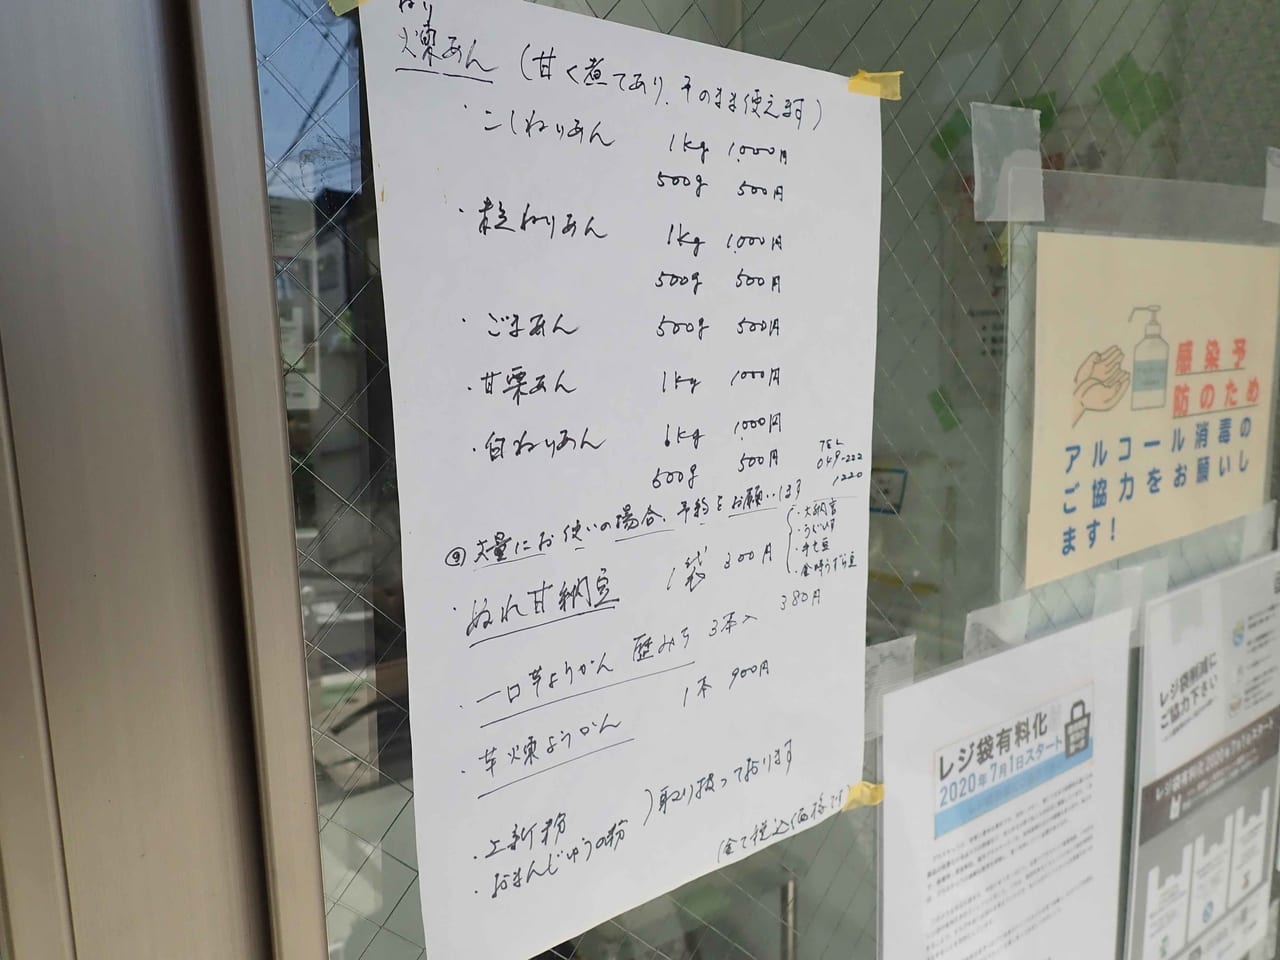 ねり
煉あん (甘く煮てあり、そのまま使えます)
・こしねりあん 1kg 1,000円
500g 500円
・粒ねりあん 1kg 1,000円
500g 500円
・ごまあん 500g 500円
・甘栗あん 1kg 1,000円
・白ねりあん 1kg 1,000円
500g 500円
TEL
049-222
1220
大量にお使いの場合、予約をお願いします
・ぬれ甘納豆 1袋 300円
・大納言
・うぐいす
・金時うずら豆
・一口芋ようかん 3本入 380円
・芋煉ようかん 1本 900円
・上新粉
・おまんじゅうの粉
)取り扱っております
(全て税込価格です)
感染予
防のため
アルコール消毒の
ご協力をお願いし
ます!
レジ袋有料化
2020年7月1日スタート
レジ袋削減に
ご協力下さい
レジ袋有料化 2020年7月1日スタート